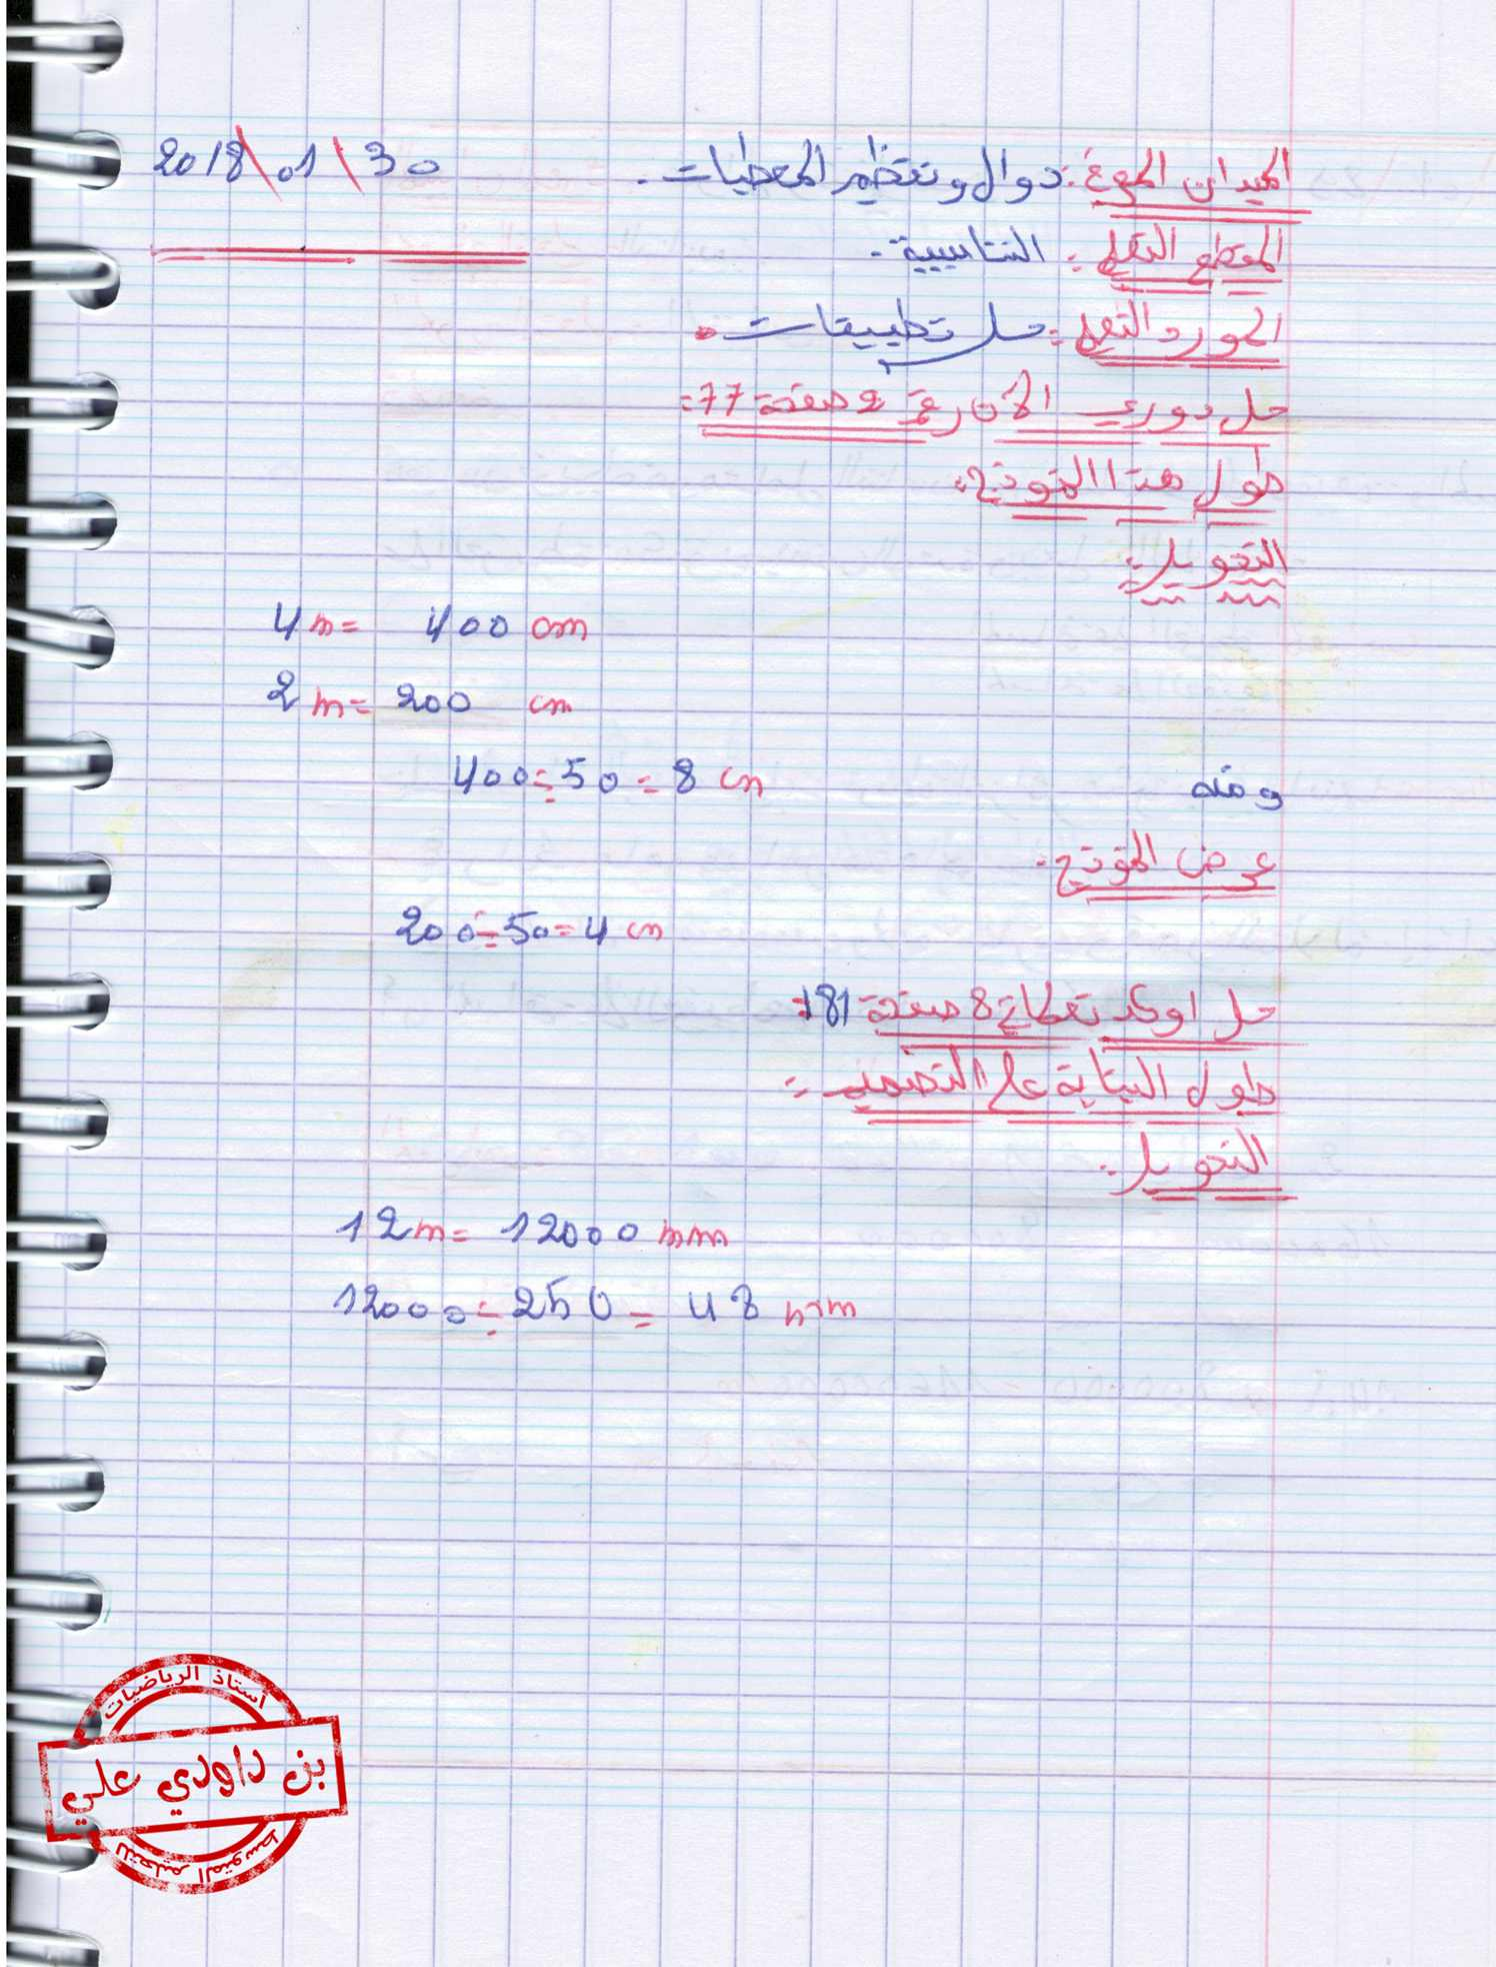 الميدان المعرفي: دوال وتنظيم المعطيات. 2018\01\30
المقطع التعلمي: التناسبية.
المورد التعلمي: حل تطبيقات.
حل دوري الآن رقم 2 صفحة 77:
طول هذا النموذج:
التحويل:
4 m = 400 cm
2 m = 200 cm
ومنه 400 ÷ 50 = 8 cm
عرض النموذج.
200 ÷ 50 = 4 cm
حل اوكد تعلماتي 8 صفحة 181:
طول البناية على التصميم:
التحويل:
12 m = 12000 mm
12000 ÷ 250 = 48 mm
أستاذ الرياضيات
بن داودي علي
للتعليم المتوسط